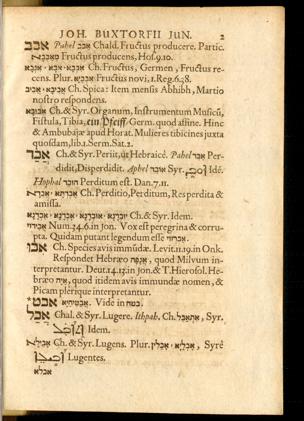 JOH. BUXTORFII JUN. 2
אבב Pahel אבב Chald. Fructus producere. Partic.
מאבבא Fructus producens, Hos. 9. 10.
אבא · אבא · אנבא Ch. Fructus, Germen, Fructus re-
cens. Plur. אנביא Fructus novi, 1. Reg. 6. 38.
אביבא · אביב Ch. Spica: Item mensis Abhibh, Martio
nostro respondens.
אבובא Ch. & Syr. Organum, Instrumentum Musicũ,
Fistula, Tibia, ein Pfeiff Germ. quod affine. Hinc
& Ambubajæ apud Horat. Mulieres tibicines juxta
quosdam, lib. 1. Serm. Sat. 2.
אבד Ch. & Syr. Periit, ut Hebraicè. Pahel אבד Per-
didit, Disperdidit. Aphel אובד Syr. Idẽ.
Hophal הובד Perditum est. Dan. 7. 11.
Ch. Perditio, Perditum, Res perdita &
amissa.
Ch. & Syr. Idem.
אבידוי Num. 24. 6. in Jon. Vox est peregrina & corru-
pta. Quidam putant legendum esse
אבו Ch. Species avis immũdæ. Levit. 11. 19. in Onk.
Respondet Hebræo אנפה, quod Milvum in-
terpretantur. Deut. 14. 13. in Jon. & T. Hierosol. He-
bræo איה, quod itidem avis immundæ nomen, &
Picam plerique interpretantur.
אבט Vide in בטח.
אבל Chal. & Syr. Lugere. Ithpah. Ch. אתאבל, Syr.
Idem.
אבילא Ch. & Syr. Lugens. Plur. אבלין · אבליא, Syrè
Lugentes.
אבלא